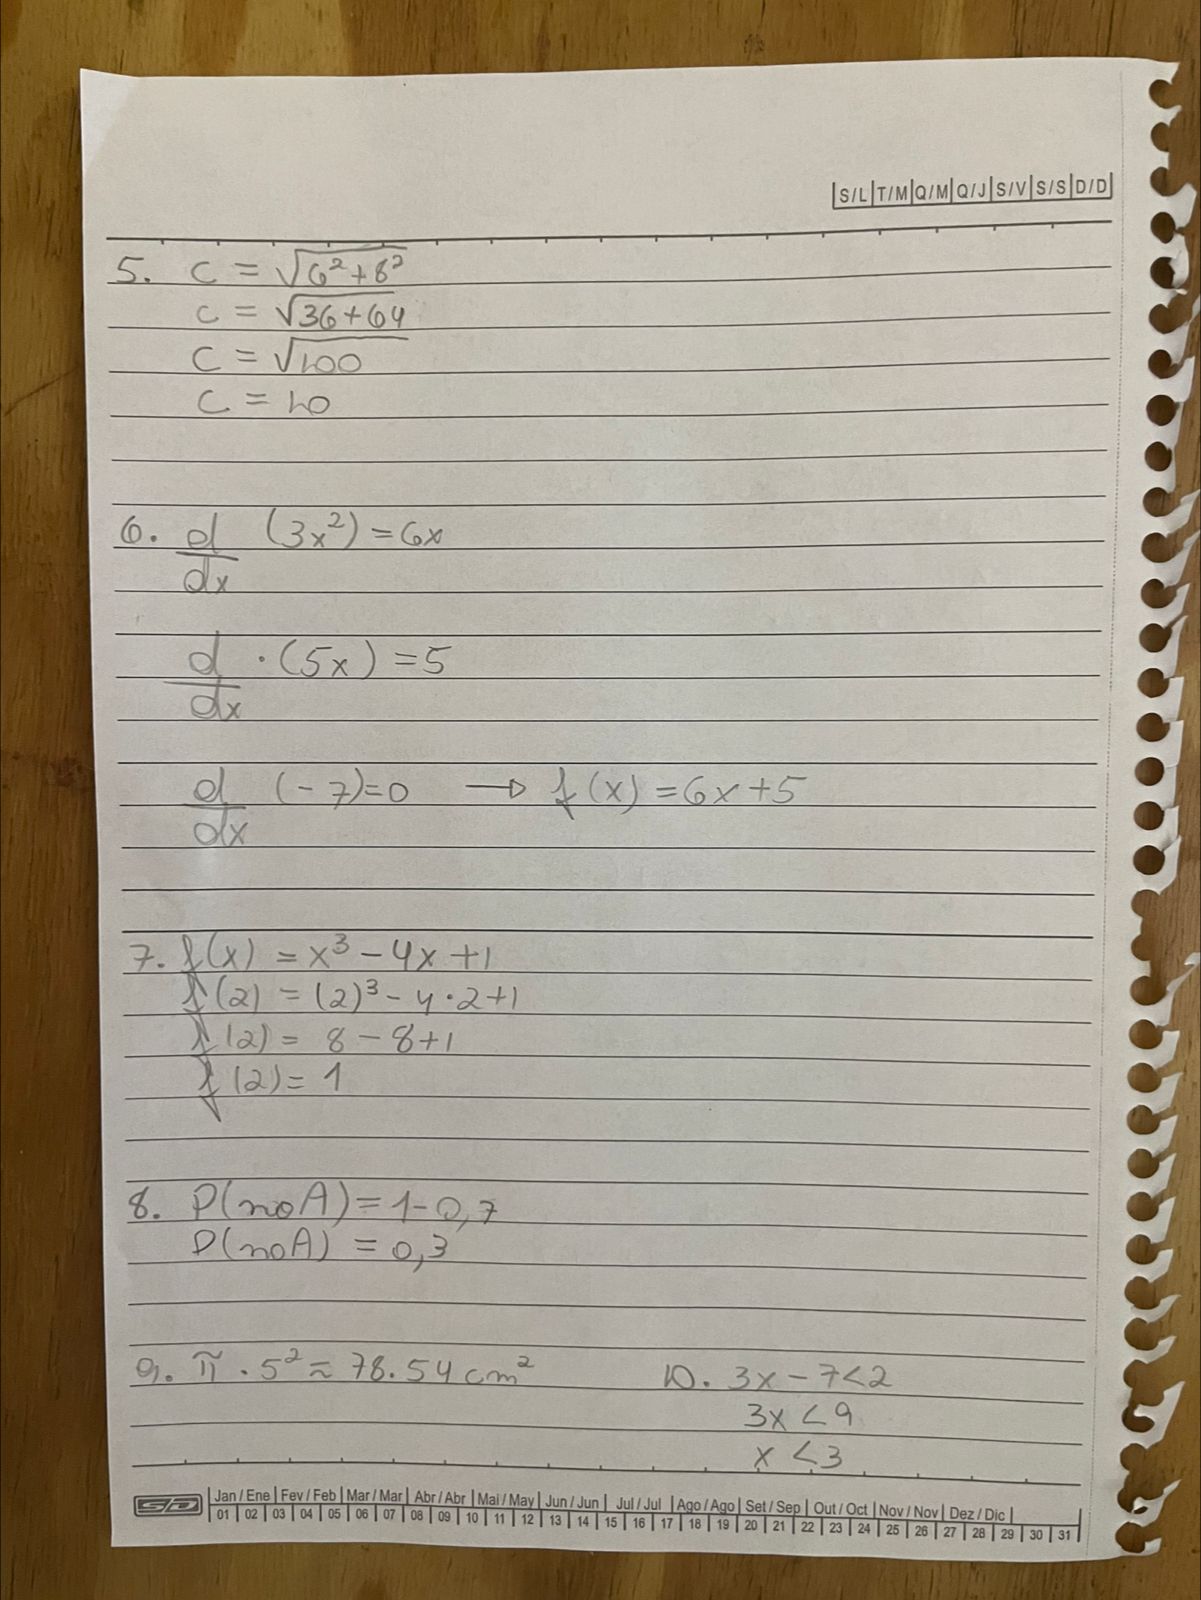 S/L T/M Q/M Q/J S/V S/S D/D
5. c = √6²+8²
c = √36+64
c = √100
c = 10
6. d/dx (3x²) = 6x
d/dx · (5x) = 5
d/dx (-7)=0 → f(x) = 6x+5
7. f(x) = x³ - 4x +1
f(2) = (2)³ - 4·2+1
f(2) = 8 - 8+1
f(2) = 1
8. P(noA) = 1-0,7
P(noA) = 0,3
9. π · 5² ≈ 78.54 cm²
10. 3x - 7<2
3x < 9
x < 3
SD Jan / Ene Fev / Feb Mar / Mar Abr / Abr Mai / May Jun / Jun Jul / Jul Ago / Ago Set / Sep Out / Oct Nov / Nov Dez / Dic
01 02 03 04 05 06 07 08 09 10 11 12 13 14 15 16 17 18 19 20 21 22 23 24 25 26 27 28 29 30 31